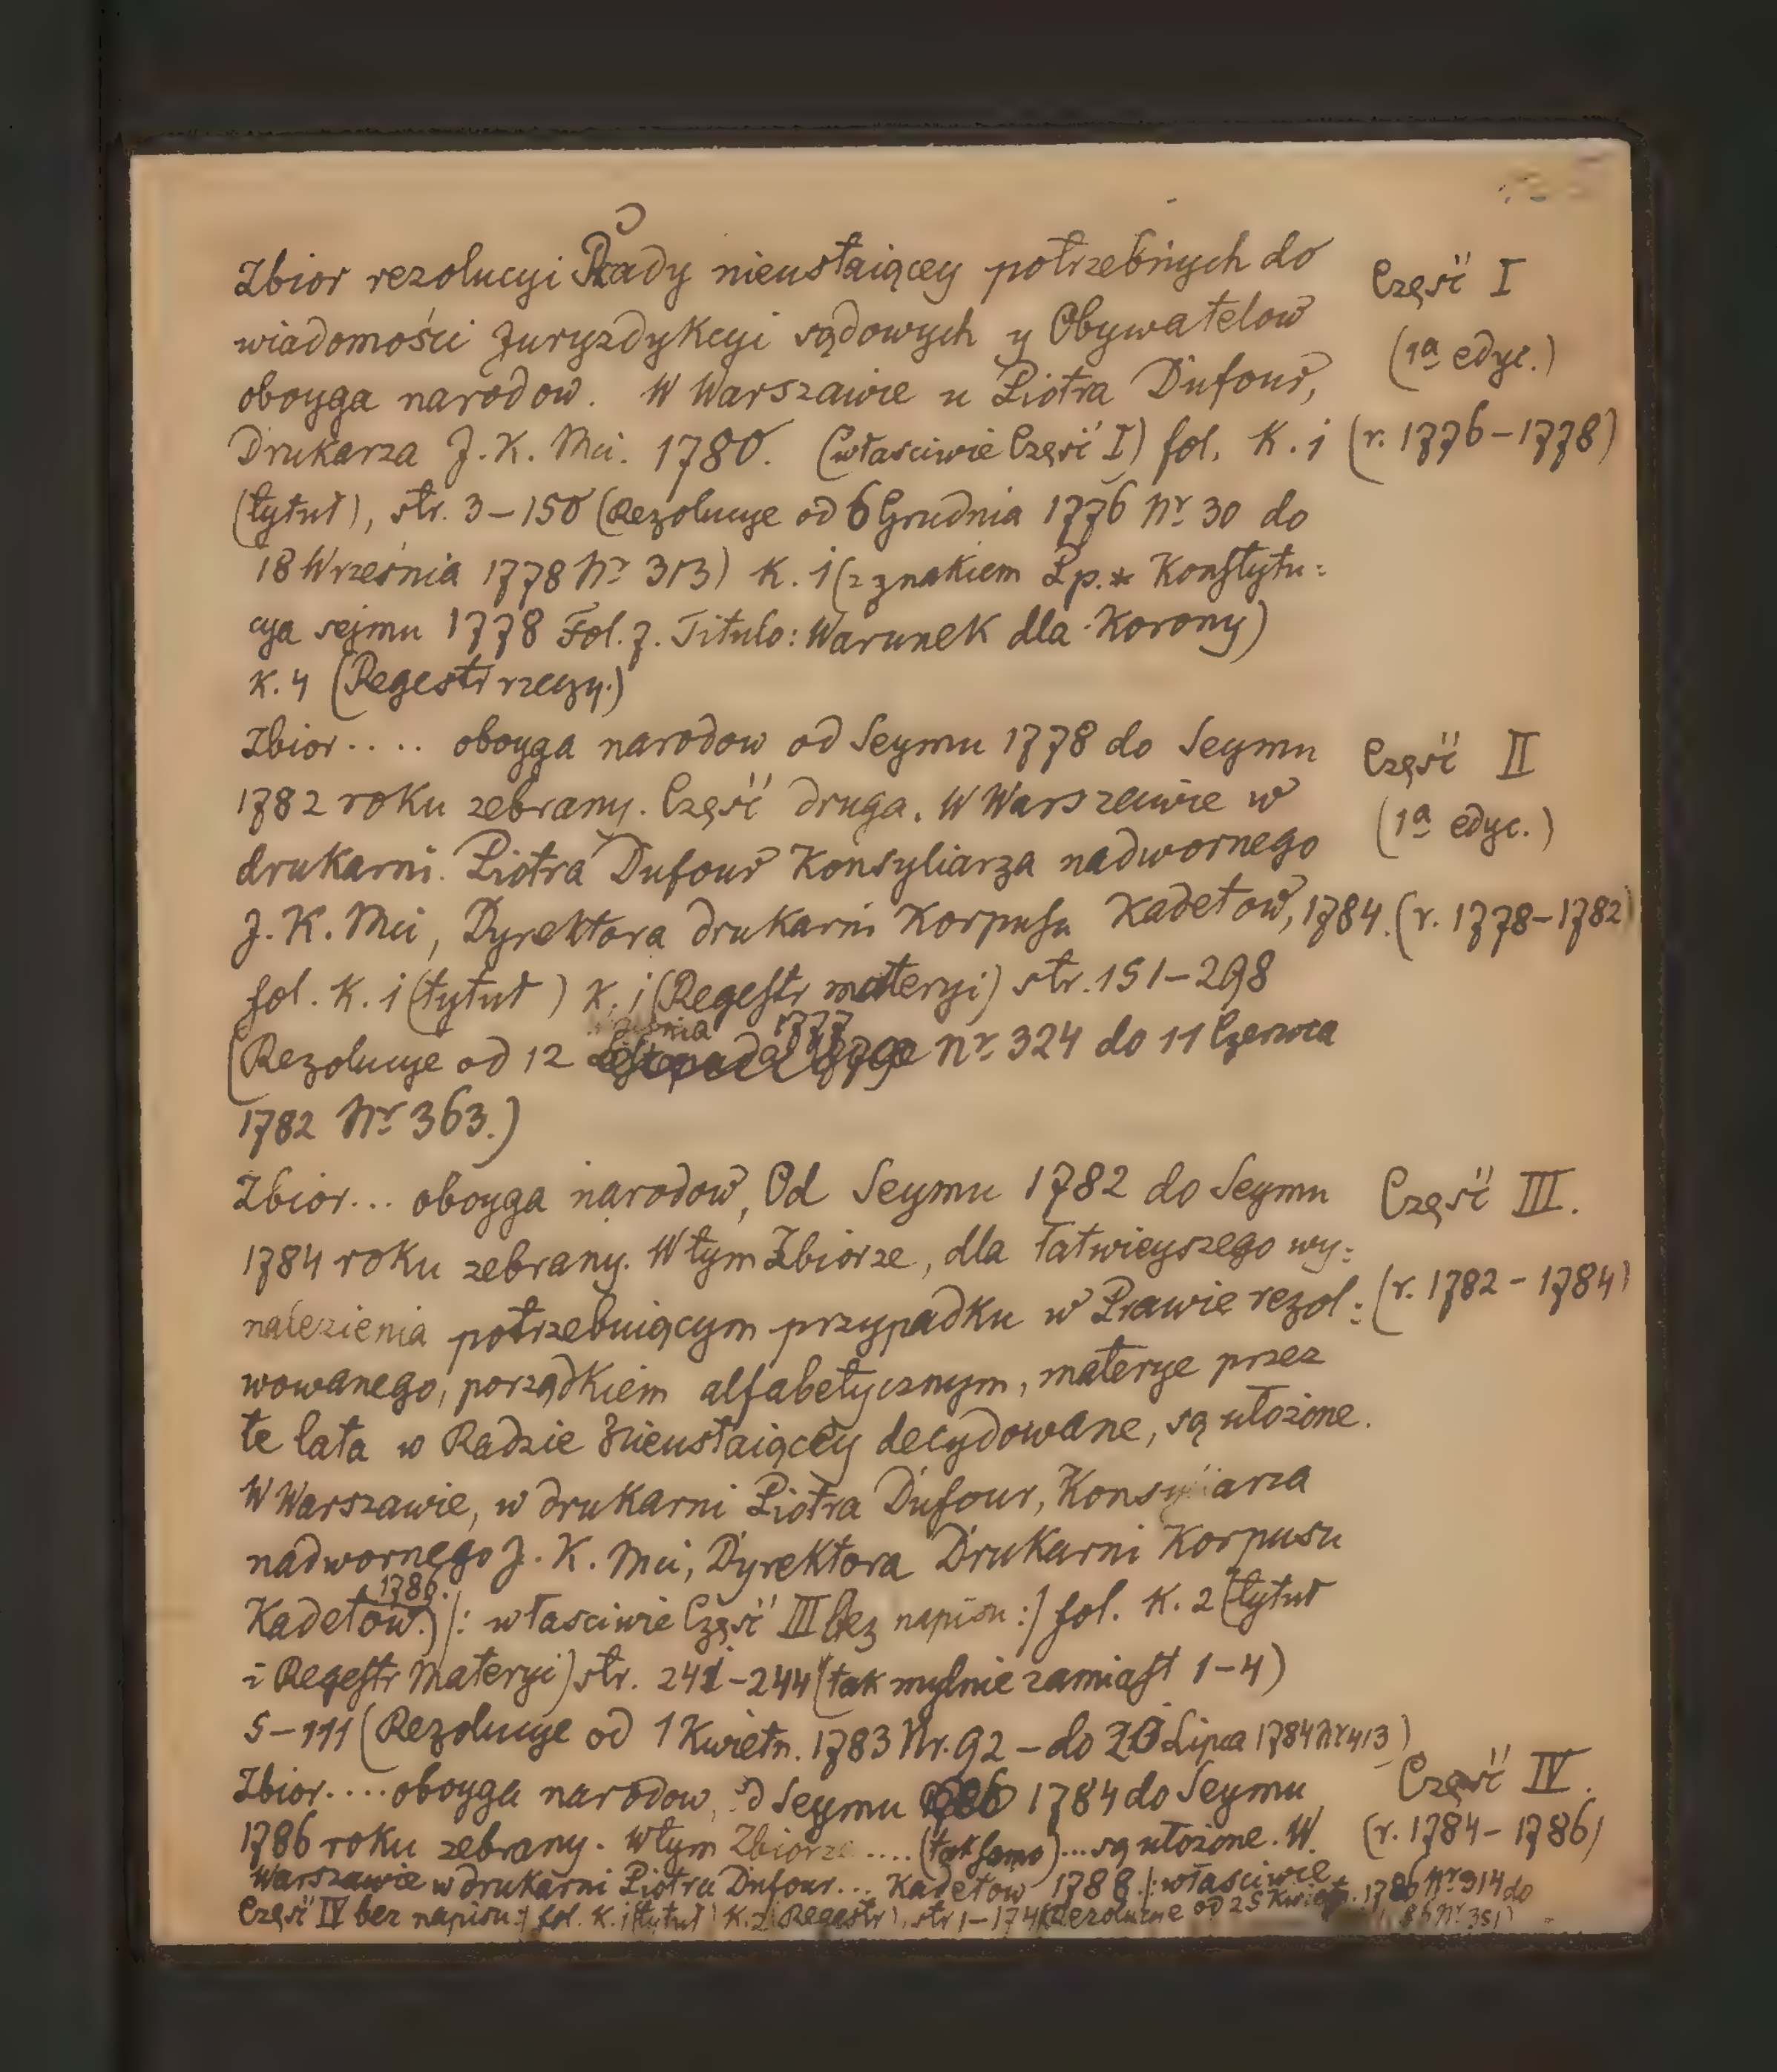 Zbior rezolucyi Rady nieustaiącey potrzebnych do
Część I
wiadomości Juryzdykcyi sądowych y Obywatelow
(1ª edyc.)
oboyga narodow. W Warszawie u Piotra Dufour,
Drukarza J. K. Mci. 1780. (właściwie Część I) fol. K. 1
(r. 1776–1778)
(tytuł), str. 3–150 (Rezolucye od 6 Grudnia 1776 Nr 30 do
18 Września 1778 Nr 313) K. 1 (z znakiem Lp.* Konstytu=
cya sejmu 1778 Fol. 7. Titulo: Warunek dla Korony)
K. 4 (Regestr rzeczy.)
Zbior.... oboyga narodow od Seymu 1778 do Seymu
Część II
1782 roku zebrany. Część druga. W Warszawie w
(1ª edyc.)
drukarni Piotra Dufour Konsyliarza nadwornego
J. K. Mci, Dyrektora drukarni Korpusu Kadetow, 1784.
(r. 1778–1782)
fol. K. 1 (tytuł) K. 1 (Regestr materyi) str. 151–298
1777
(Rezolucye od 12 Nr 324 do 11 Czerwca
1782 Nr 363.)
Zbior... oboyga narodow, Od Seymu 1782 do Seymu
Część III.
1784 roku zebrany. W tym Zbiorze, dla łatwieyszego wy=
nalezienia potrzebuiącym przypadku w Prawie rezol=
(r. 1782 – 1784)
wowanego, porządkiem alfabetycznym, materye przez
te lata w Radzie Nieustaiącey decydowane, są ułożone.
W Warszawie, w drukarni Piotra Dufour, Konsyliarza
nadwornego J. K. Mci, Dyrektora Drukarni Korpusu
1786.
Kadetow.) /: właściwie Część III bez napisu :/ fol. K. 2 (tytuł
i Regestr Materyi) str. 241–244 (tak mylnie zamiast 1–4)
5–111 (Rezolucye od 1 Kwietn. 1783 Nr. 92 – do 20 Lipca 1784 Nr 413)
Zbior.... oboyga narodow, Od Seymu 1784 do Seymu
Część IV.
1786 roku zebrany. W tym Zbiorze .... (tak samo) ... są ułożone. W
(r. 1784 – 1786)
Warszawie w drukarni Piotra Dufour... Kadetow 1788 /: właściwie
Część IV bez napisu :/ fol. K. 1 (tytuł) K. 2 (Regestr), str 1–174 (Rezolucye od 25 Kwietn. 1786 Nr 914 do
86 Nr 351)